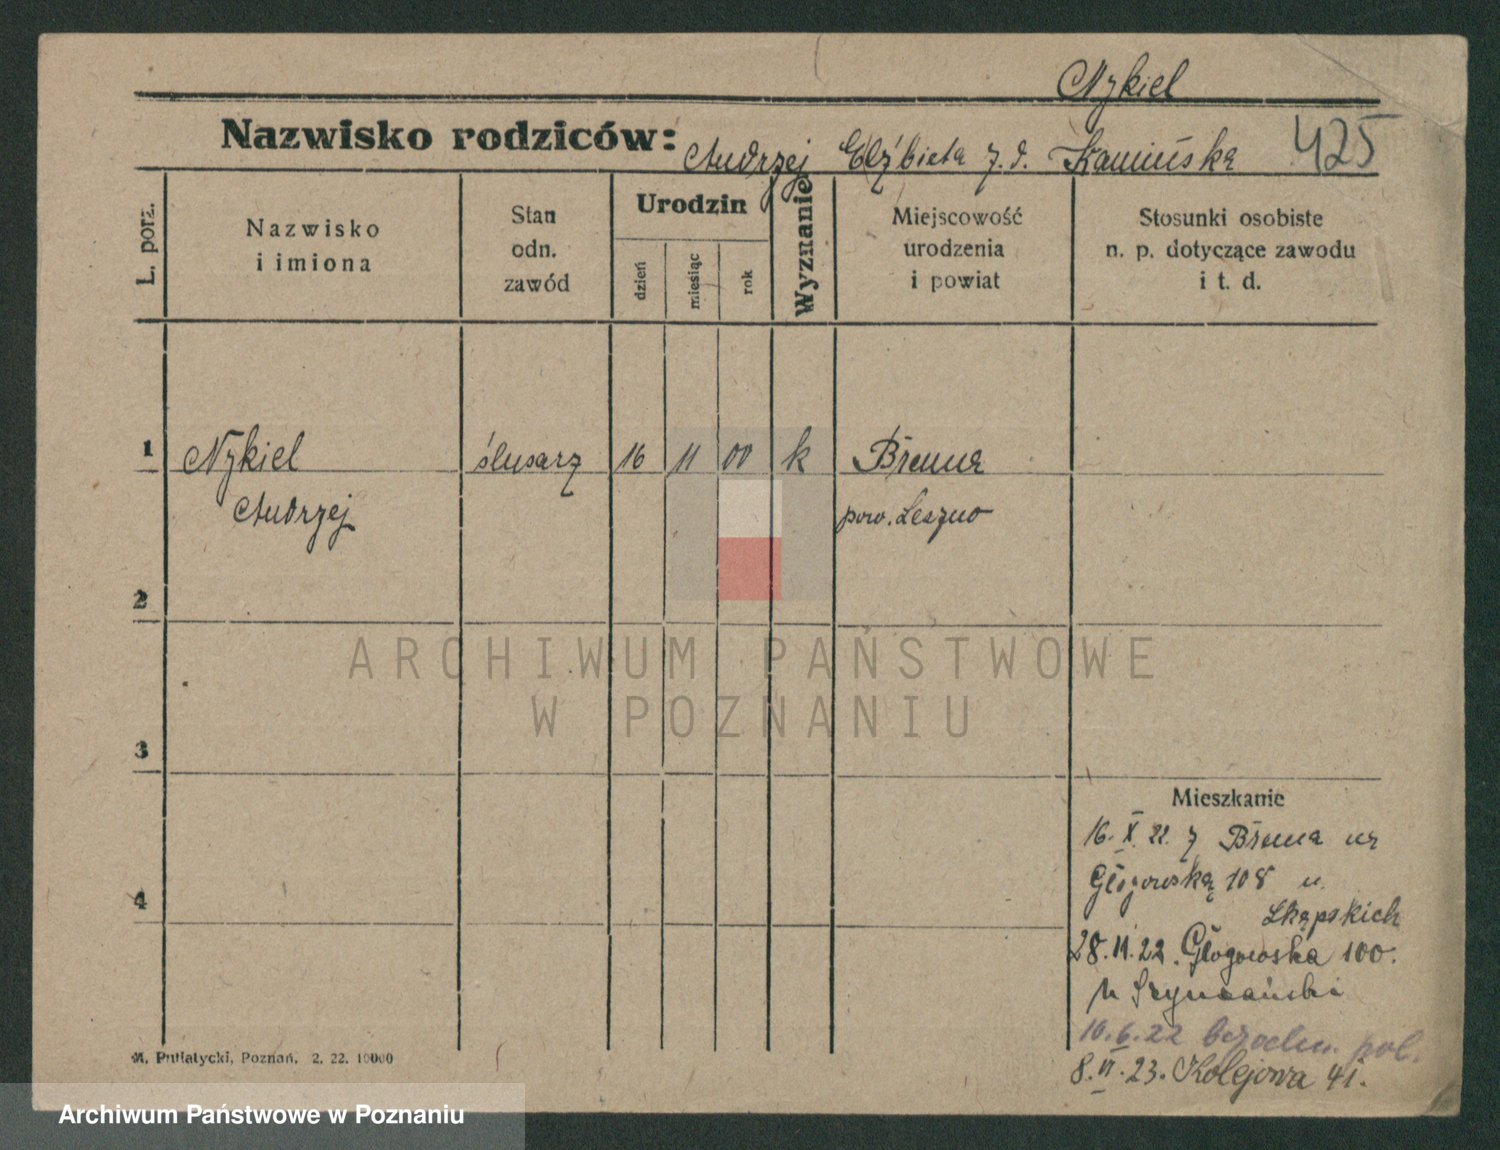 Nykiel
Nazwisko rodziców: Andrzej Elżbieta z. d. Kamińska 425
L. porz.
Nazwisko
i imiona
Stan
odn.
zawód
Urodzin
dzień
miesiąc
rok
Wyznanie
Miejscowość
urodzenia
i powiat
Stosunki osobiste
n. p. dotyczące zawodu
i t. d.
1 Nykiel ślusarz 16 11 00 k Brenna
Andrzej pow. Leszno
2
ARCHIWUM PAŃSTWOWE
W POZNANIU
3
Mieszkanie
16. X. 22. z Brenna na
Głogowską 108 u.
Skąpskich
4
28.11.22. Głogowska 100.
u Szymański
10.6.22 pol.
8.VI.23. Kolejowa 41.
M. Putiatycki, Poznań, 2. 22. 10000
Archiwum Państwowe w Poznaniu